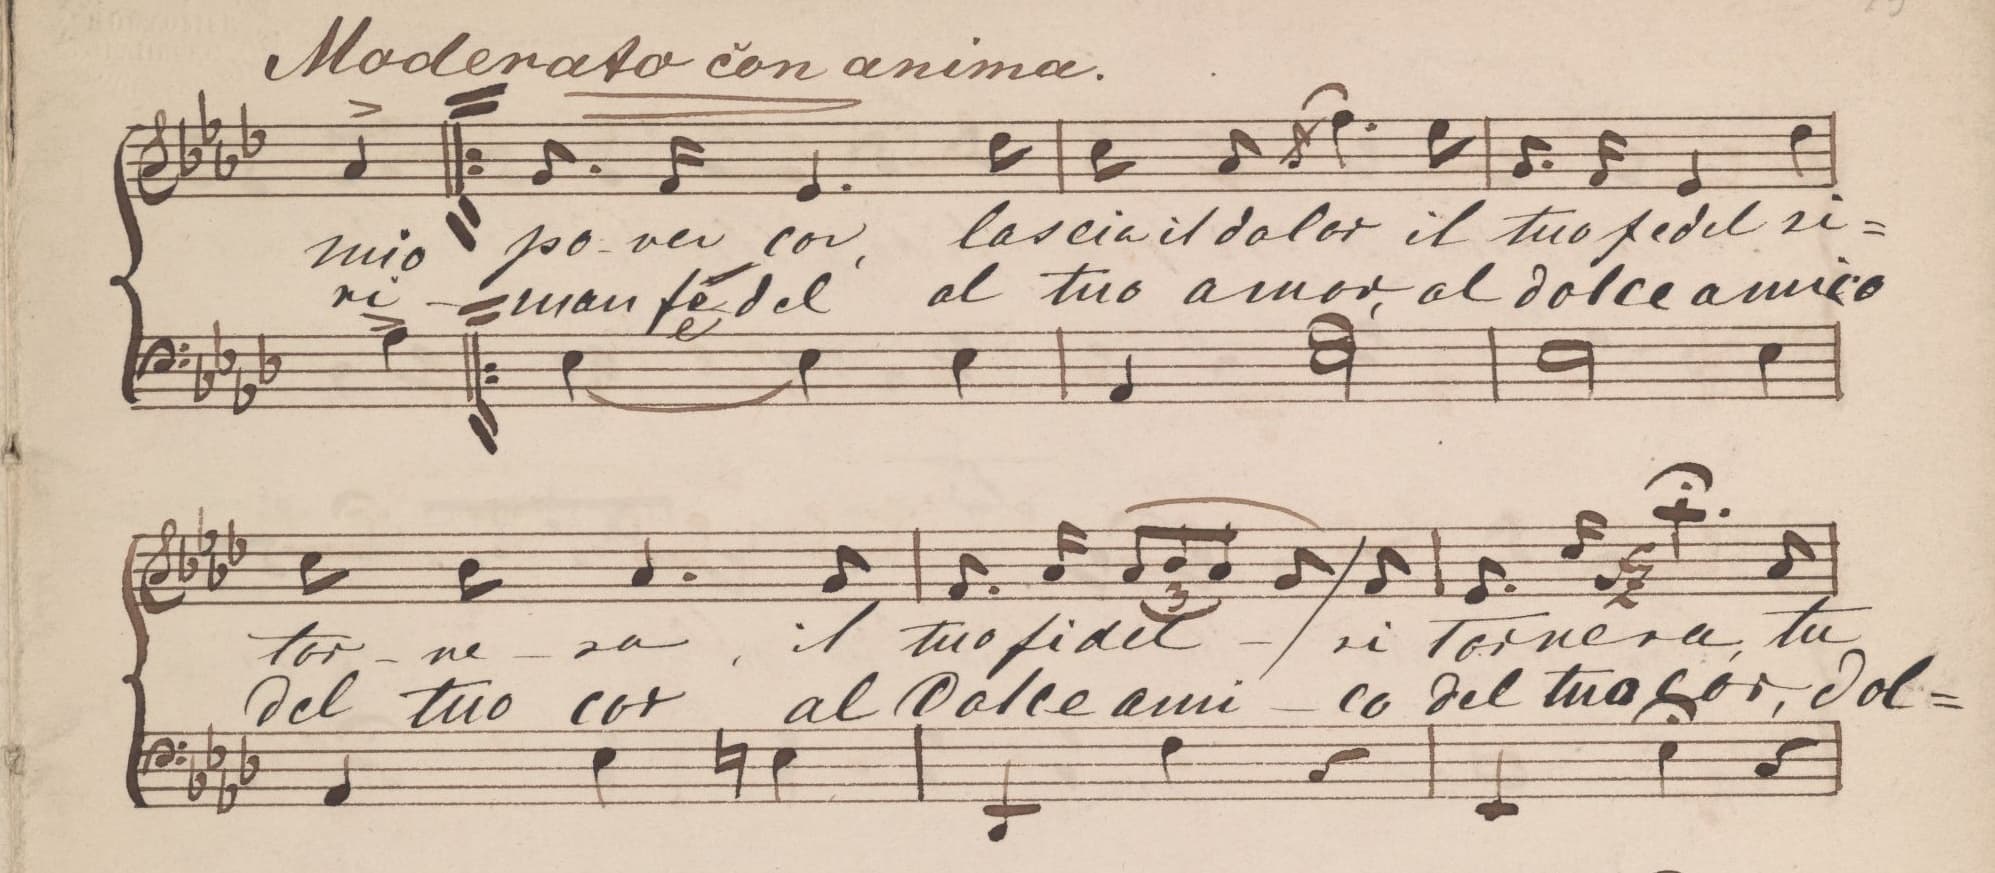 Moderato con anima.
mio po-ver cor, lascia il dolor il tuo fedel ri=
ri - man fedel al tuo amor, al dolce amico
e
tor - ne - ra, il tuo fidel - ri tornera, tu
3
del tuo cor al Dolce ami - co del tuo cor, dol=